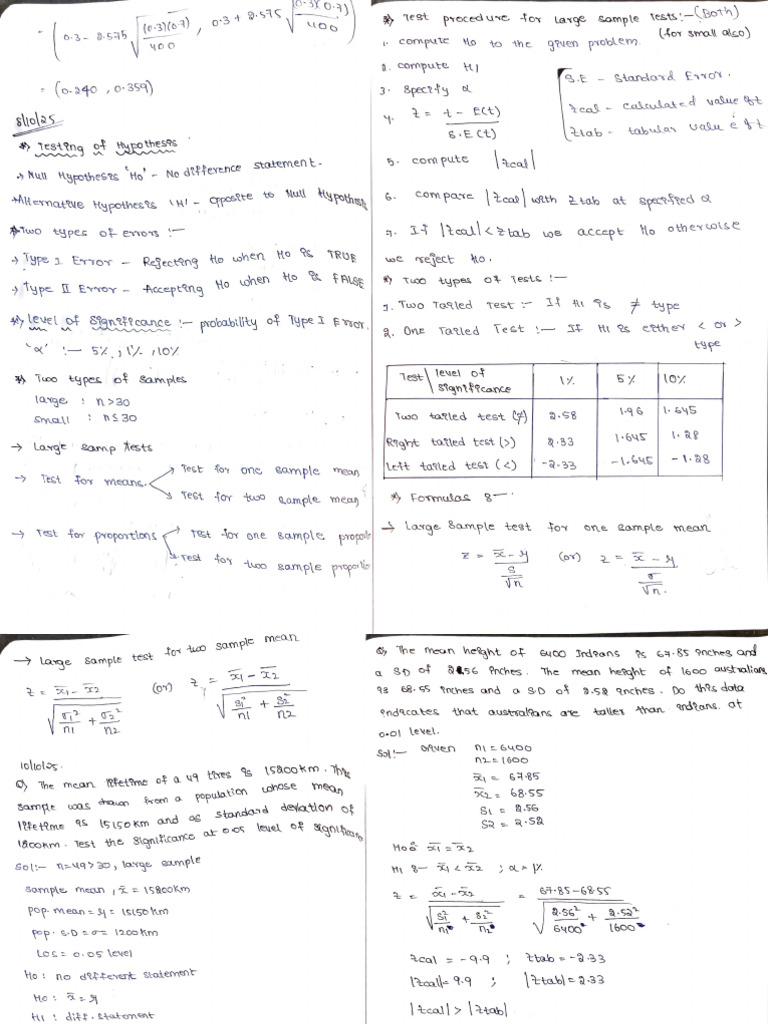 = (0.3 - 2.575 √((0.3)(0.7)/400) , 0.3 + 2.575 √((0.3)(0.7)/400))
= (0.240 , 0.359)
8/10/25
*) Testing of Hypothesis
→ Null Hypothesis 'Ho' - No difference statement.
→ Alternative Hypothesis 'H1' - opposite to Null Hypothes
*) Two types of errors :-
→ Type I Error - Rejecting Ho when Ho is TRUE
→ Type II Error - Accepting Ho when Ho is FALSE
*) level of significance :- probability of Type I Error.
'α' :- 5%, 1%, 10%
*) Two types of samples
large : n>30
small : n≤30
→ Large samp tests
→ Test for means. → Test for one sample mean
→ Test for two sample mean
→ Test for proportions → Test for one sample proporti
→ Test for two sample proportio
*) Test procedure for large sample tests:- (Both)
(for small also)
1. compute Ho to the given problem.
2. compute H1
3. Specify α
4. Z = (t - E(t)) / (S.E(t))
S.E - Standard Error.
Zcal - calculated value of t
Ztab - tabular value of t
5. compute |Zcal|
6. compare |Zcal| with Ztab at specified α
7. If |Zcal| < Ztab we accept Ho otherwise
we reject Ho.
*) Two types of Tests :-
1. Two Tailed Test :- If H1 is ≠ type
2. One Tailed Test :- If H1 is either < or >
type
Test \ level of significance 1% 5% 10%
Two tailed test (≠) 2.58 1.96 1.645
Right tailed test (>) 2.33 1.645 1.28
Left tailed test (<) -2.33 -1.645 -1.28
*) Formulas :-
→ Large sample test for one sample mean
z = (x̄ - μ) / (s/√n) (or) z = (x̄ - μ) / (σ/√n).
→ Large sample test for two sample mean
z = (x̄1 - x̄2) / √(σ1²/n1 + σ2²/n2) (or) z = (x̄1 - x̄2) / √(s1²/n1 + s2²/n2)
10/10/25.
Q) The mean lifetime of a 49 tires is 15200km. This
sample was drawn from a population whose mean
lifetime is 15150km and as standard deviation of
1200km. Test the significance at 0.05 level of significan
Sol:- n=49>30, large sample
sample mean, x̄ = 15200km
pop. mean = μ = 15150km
pop. S.D = σ = 1200km
LOS = 0.05 level
Ho: no different statement
Ho: x̄ = μ
H1: diff. statement
Q) The mean height of 6400 Indians is 67.85 inches and
a SD of 2.56 inches. The mean height of 1600 australian
is 68.55 inches and a SD of 2.52 inches. Do this data
indicates that australians are taller than indians. at
0.01 level.
Sol:- Given n1 = 6400
n2 = 1600
x̄1 = 67.85
x̄2 = 68.55
S1 = 2.56
S2 = 2.52
Ho: x̄1 = x̄2
H1 :- x̄1 < x̄2 ; α = 1%
z = (x̄1 - x̄2) / √(s1²/n1 + s2²/n2) = (67.85 - 68.55) / √(2.56²/6400 + 2.52²/1600)
Zcal = -9.9 ; Ztab = -2.33
|Zcal| = 9.9 ; |Ztab| = 2.33
|Zcal| > |Ztab|